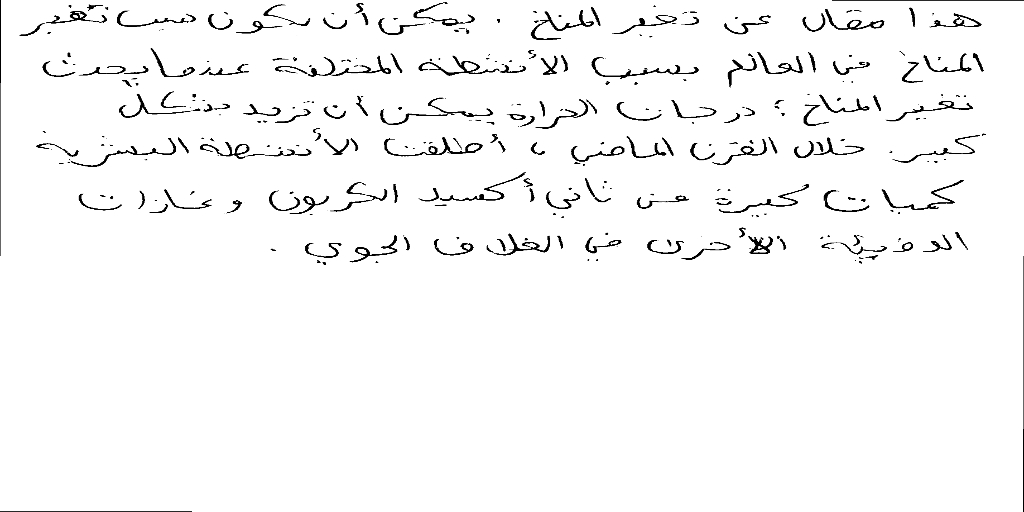 هذا مقال عن تغير المناخ . يمكن أن يكون سبب تغير
المناخ في العالم بسبب الأنشطة المختلفة عندما يحدث
تغير المناخ ؛ درجات الحرارة يمكن أن تزيد بشكل
كبير . خلال القرن الماضي ، أطلقت الأنشطة البشرية
كميات كبيرة من ثاني أكسيد الكربون و غازات
الدفيئة الأخرى في الغلاف الجوي .